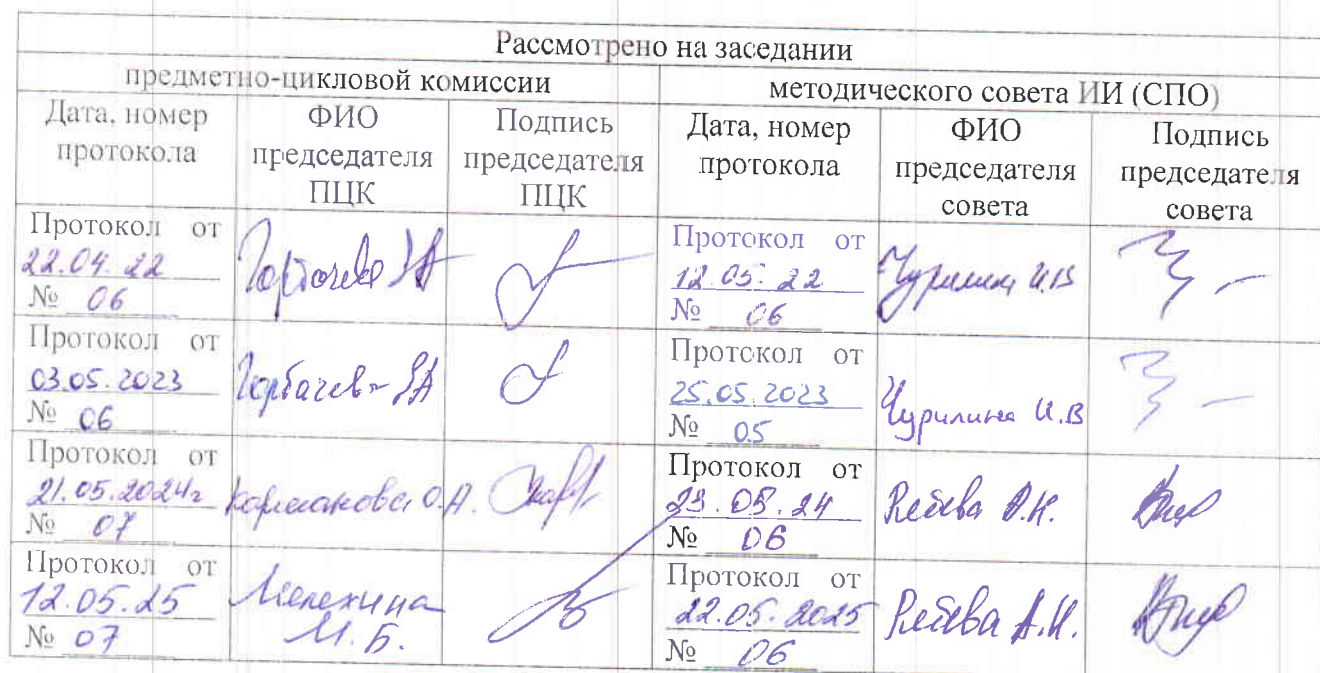 Рассмотрено на заседании
предметно-цикловой комиссии
методического совета ИИ (СПО)
Дата, номер
протокола
ФИО
председателя
ПЦК
Подпись
председателя
ПЦК
Дата, номер
протокола
ФИО
председателя
совета
Подпись
председателя
совета
Протокол от
22.04.22
№ 06
Горбачева
Протокол от
12.05.22
№ 06
Чурилина И.В
Протокол от
03.05.2023
№ 06
Горбачева
Протокол от
25.05.2023
№ 05
Чурилина И.В
Протокол от
21.05.2024г
№ 07
О.А.
Протокол от
23.05.24
№ 06
Протокол от
12.05.25
№ 07
Мелехина
М.Б.
Протокол от
22.05.2025
№ 06
А.Н.